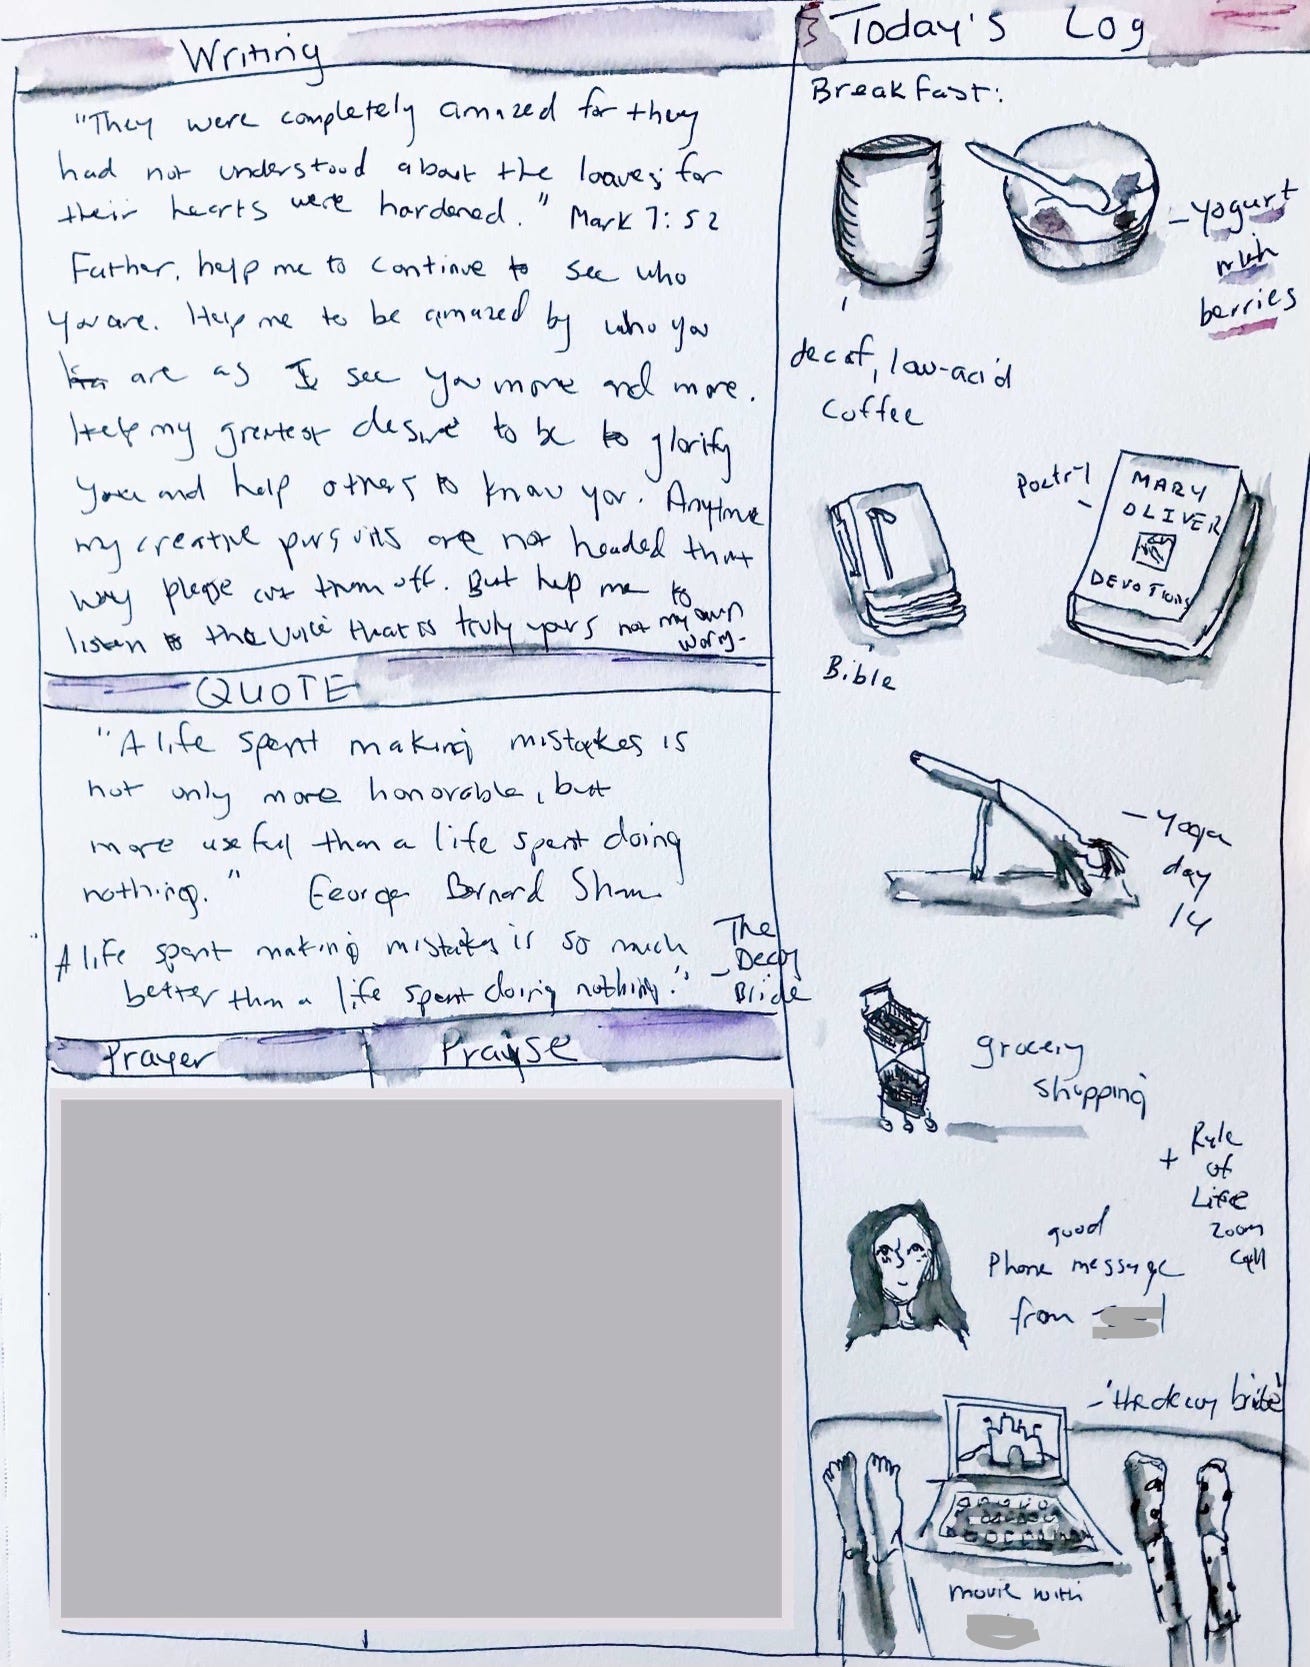 Writing
"They were completely amazed for they
had not understood about the loaves; for
their hearts were hardened." Mark 7:52
Father, help me to continue to see who
you are. Help me to be amazed by who you
are as I see you more and more.
Help my greatest desire to be to glorify
you and help others to know you. Anytime
my creative pursuits are not headed that
way please cut them off. But help me to
listen to the voice that is truly yours not my own
worry.
QUOTE
"A life spent making mistakes is
not only more honorable, but
more useful than a life spent doing
nothing." George Bernard Shaw
A life spent making mistakes is so much
better than a life spent doing nothing." - The
Decoy
Bride
Prayer
Praise
Today's Log
Breakfast:
- yogurt
with
berries
decaf, low-acid
coffee
Poetry -
MARY
OLIVER
DEVOTIONS
Bible
- yoga
day
14
grocery
shopping
+ Rule
of
Life
Zoom
call
good
Phone message
from
- 'the decoy bride'
movie with